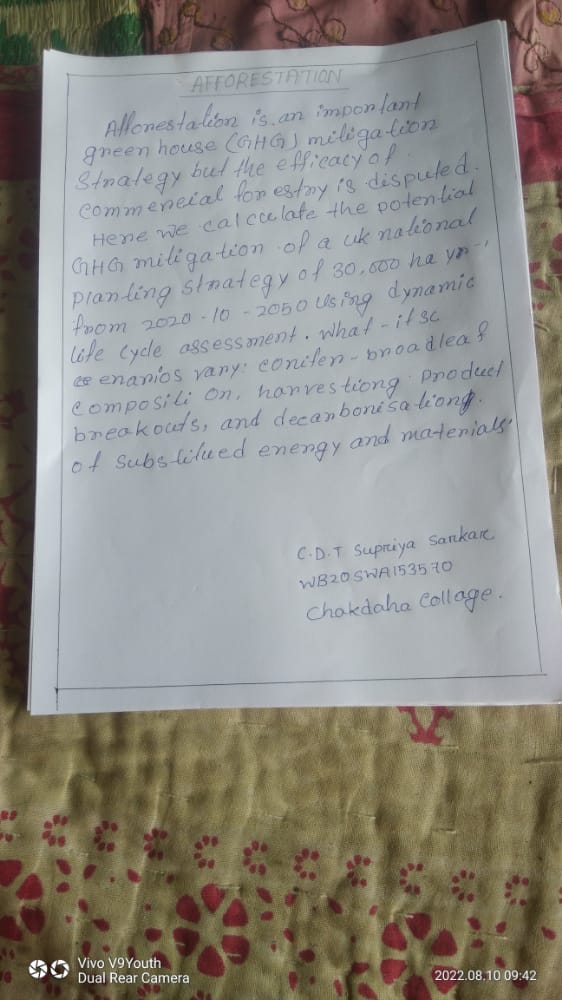 AFFORESTATION
Afforestation is an important
green house (GHG) mitigation
Strategy but the efficacy of
commercial forestry is disputed.
Here we calculate the potential
GHG mitigation of a uk national
planting strategy of 30,000 ha yr-1
from 2020-10-2050 using dynamic
life cycle assessment. What-if sc
enarios vary: conifer-broadleaf
compositi on, harvestiong product
breakouts, and decarbonisationg.
of substitued energy and materials.
C.D.T Supriya Sarkar
WB20SWA153570
Chakdaha Collage.
Vivo V9Youth
Dual Rear Camera
2022.08.10 09:42